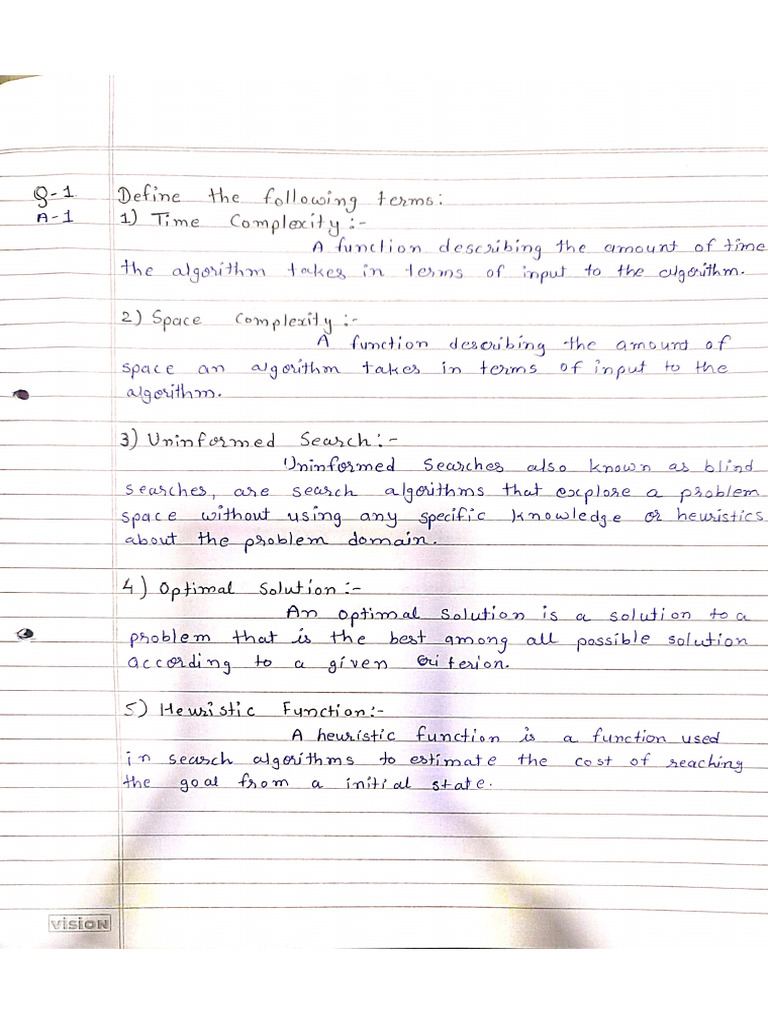 Q-1 Define the following terms:
A-1 1) Time Complexity :-
A function describing the amount of time
the algorithm takes in terms of input to the algorithm.
2) Space Complexity :-
A function describing the amount of
space an algorithm takes in terms of input to the
algorithm.
3) Uninformed Search :-
Uninformed Searches also known as blind
searches, are search algorithms that explore a problem
space without using any specific knowledge or heuristics
about the problem domain.
4) Optimal Solution :-
An optimal solution is a solution to a
problem that is the best among all possible solution
according to a given criterion.
5) Heuristic Function :-
A heuristic function is a function used
in search algorithms to estimate the cost of reaching
the goal from a initial state.
vision